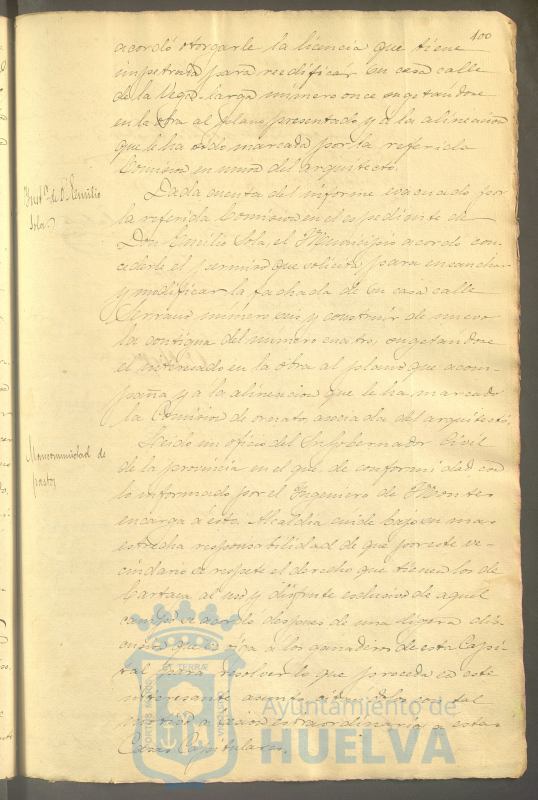 100
acordó otorgarle la licencia que tiene
impetrada para reedificar su casa calle
de la Vega-larga número once sugetandose
en la obra al plano presentado y a la alineacion
que le ha sido marcada por la referida
Comision en union del arquitecto.
Inst.ª de D. Emilio
Sola
Dada cuenta del informe evacuado por
la referida Comision en el espediente de
Don Emilio Sola, el Municipio acordó con-
cederle el permiso que solicita para ensanchar
y modificar la fachada de su casa calle
número seis y construir de nuevo
la contigua del número cuatro, sugetandose
el interesado en la obra al plano que acom-
paña y a la alineacion que le ha marcado
la Comision de ornato asociada del arquitecto.
Mancomunidad de
pastos
Leido un oficio del Sr. Gobernador Civil
de la provincia en el que de conformidad con
lo informado por el Ingeniero de Montes
encarga á esta Alcaldia cuide bajo su mas
estrecha responsabilidad de que por este ve-
cindario se respete el derecho que tienen los de
Cartaya al uso y disfrute esclusivo de aquel
campo se acordó despues de una ligera dis-
cusion que se oiga á los ganaderos de esta Capi-
tal para resolver lo que proceda en este
interesante asunto
estraordinaria á estas
Casas Capitulares.
PORTUS MARIS
ET TERRÆ
CUSTODIA
Ayuntamiento de
HUELVA